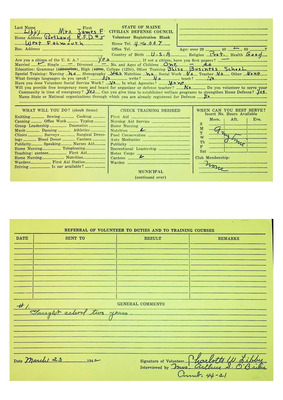 Last Name First STATE OF MAINE
Libby Mrs James F CIVILIAN DEFENSE COUNCIL
Home Address Portland R.F.D #5 Volunteer Registration Blank
West Falmouth Home Tel. 4-6007
Bus. Address Office Tel.
Country of Birth U.S.A Religion Prot. Health Good
Are you a citizen of the U. S. A.? Yes If not a citizen, have you first papers?
Married Single Divorced No. and Ages of Children One
Education: Grammar High College Other Training Bliss Business School
Special Training: Nursing no Stenography Yes Nutrition no Social Work No Teacher No Other None
What foreign languages do you speak? No
Have you done Volunteer Social Service Work? No In what Agencies? None
Will you provide free temporary room and board for organizer or defense teacher? No Do you volunteer to serve your
Community in time of emergency? Yes Can you give time to established volunteer services to strengthen Home Defense? Yes
WHAT WILL YOU DO? (check items)
Knitting Sewing Cooking
Canning Office Work Typing
Group Leadership Dramatics
Music Dancing Athletic
Clinics Surveys Surgical Dressings
Blood Donor Canteen
Publicity Speaking Nurses Aid
Home Nursing Telephoning
Teaching: canteen First Aid
Home Nursing Nutrition
Wardens First Aid Station
Driving Is car available?
CHECK TRAINING DESIRED
First Aid
Nursing Aid Service
Home Nursing
Nutrition
Food Conservation
Auto Mechanic
Publicity
Recreational Leadership
Motor Corps
Canteen
Warden
MUNICIPAL
(continued over)
WHEN CAN YOU BEST SERVE?
Insert No. Hours Available
Morn. Aft. Eve.
S
M
T
W
Th
F
Sat
Any time
Club Membership:
None
REFERRAL OF VOLUNTEER TO DUTIES AND TO TRAINING COURSES
DATE SENT TO RESULT REMARKS
GENERAL COMMENTS
#1
Taught school two years.
Date March 23 1942 Signature of Volunteer Charlotte W Libby
Interviewed by Mrs. Arthur S. O'Brien
Cumb. 44-21